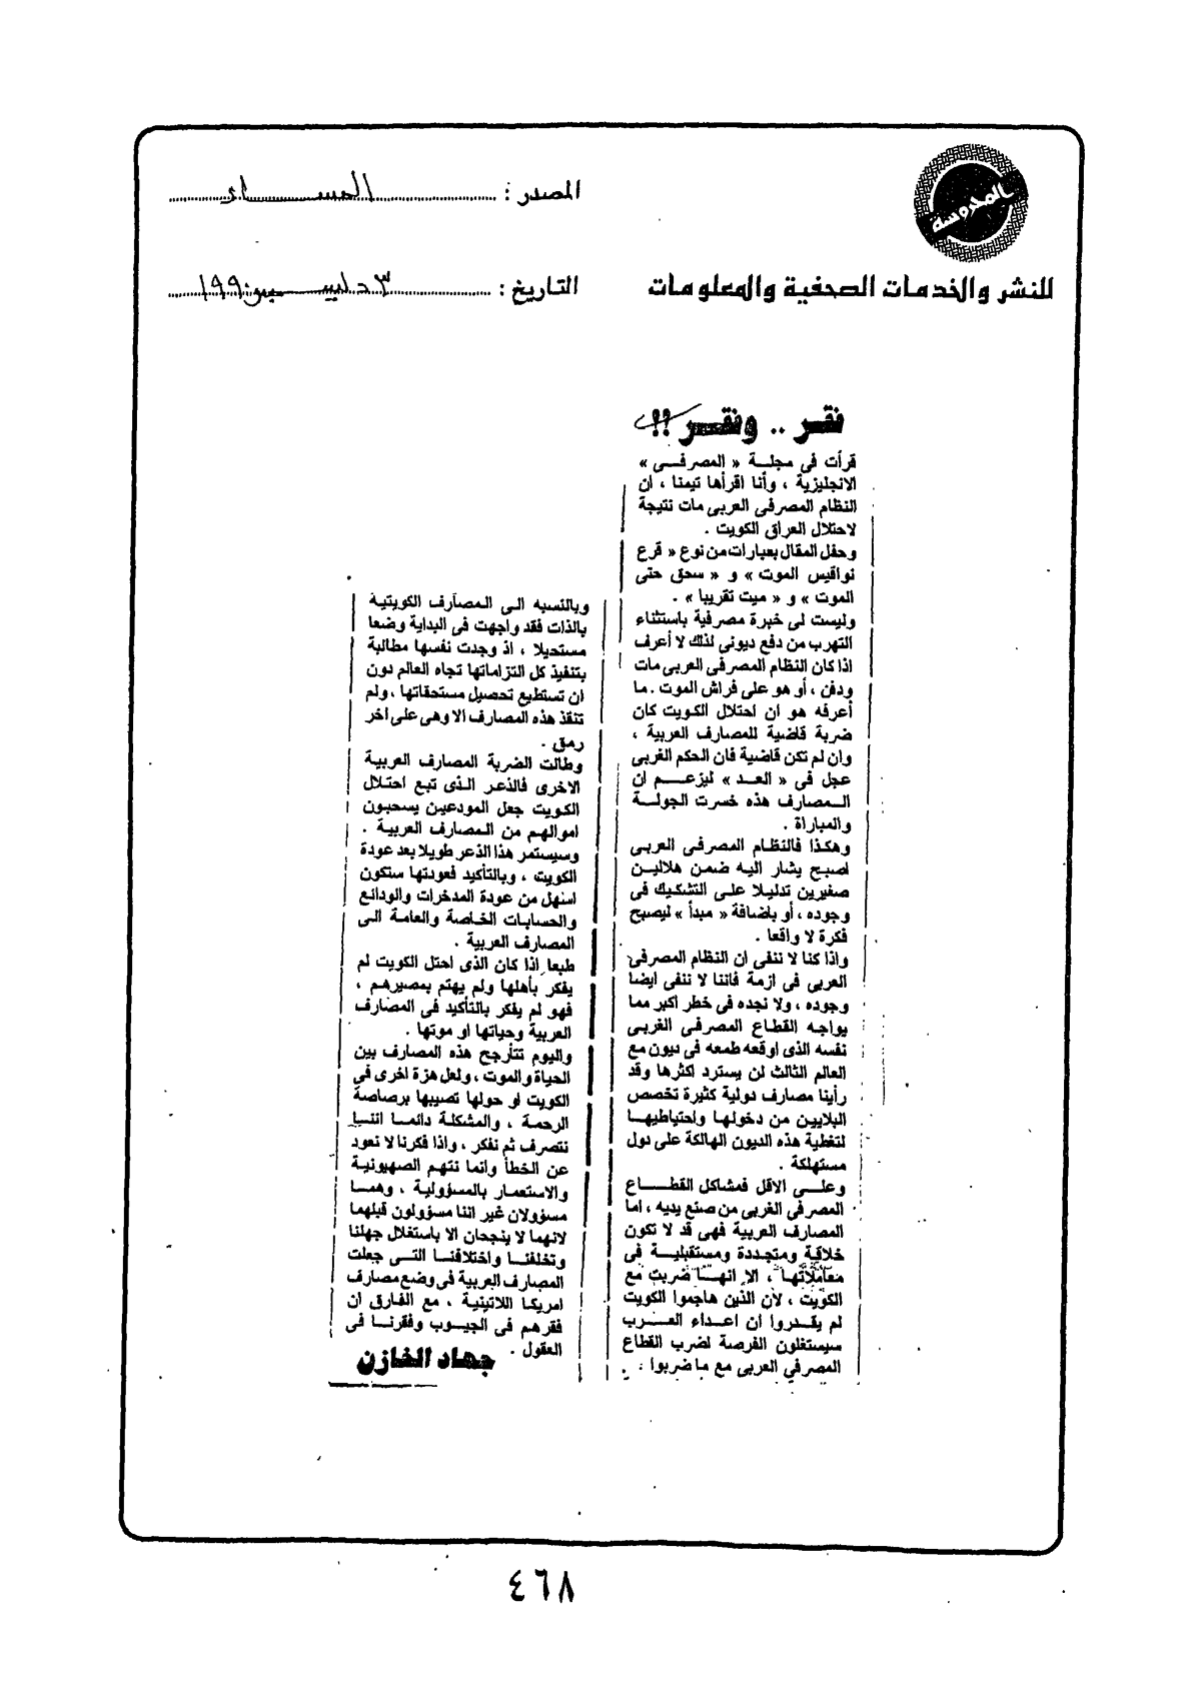 المحروسة
المصدر : المساء
للنشر والخدمات الصحفية والمعلومات
التاريخ : ٣ ديسمبر ١٩٩٠
فقر .. وفقر !!
قرأت فى مجلة « المصرفى »
الانجليزية ، وأنا اقرأها تيمنا ، ان
النظام المصرفى العربى مات نتيجة
لاحتلال العراق الكويت .
وحفل المقال بعبارات من نوع « قرع
نواقيس الموت » و « سحق حتى
الموت » و « ميت تقريبا » .
وليست لى خبرة مصرفية باستثناء
التهرب من دفع ديونى لذلك لا أعرف
اذا كان النظام المصرفى العربى مات
ودفن ، أو هو على فراش الموت . ما
أعرفه هو ان احتلال الكويت كان
ضربة قاضية للمصارف العربية ،
وان لم تكن قاضية فان الحكم الغربى
عجل فى « العد » ليزعم ان
المصارف هذه خسرت الجولة
والمباراة .
وهكذا فالنظام المصرفى العربى
اصبح يشار اليه ضمن هلالين
صغيرين تدليلا على التشكيك فى
وجوده ، أو باضافة « مبدأ » ليصبح
فكرة لا واقعا .
واذا كنا لا ننفى ان النظام المصرفى
العربى فى ازمة فاننا لا ننفى ايضا
وجوده ، ولا نجده فى خطر اكبر مما
يواجه القطاع المصرفى الغربى
نفسه الذى اوقعه طمعه فى ديون مع
العالم الثالث لن يسترد اكثرها وقد
رأينا مصارف دولية كثيرة تخصص
البلايين من دخولها واحتياطيها
لتغطية هذه الديون الهالكة على دول
مستهلكة .
وعلى الاقل فمشاكل القطاع
المصرفى الغربى من صنع يديه ، اما
المصارف العربية فهى قد لا تكون
خلاقة ومتجددة ومستقبلية فى
معاملاتها ، الا انها ضربت مع
الكويت ، لأن الذين هاجموا الكويت
لم يقدروا ان اعداء العرب
سيستغلون الفرصة لضرب القطاع
المصرفي العربى مع ما ضربوا .
وبالنسبه الى المصارف الكويتية
بالذات فقد واجهت فى البداية وضعا
مستحيلا ، اذ وجدت نفسها مطالبة
بتنفيذ كل التزاماتها تجاه العالم دون
ان تستطيع تحصيل مستحقاتها ، ولم
تنقذ هذه المصارف الا وهى على اخر
رمق .
وطالت الضربة المصارف العربية
الاخرى فالذعر الذى تبع احتلال
الكويت جعل المودعين يسحبون
اموالهم من المصارف العربية .
وسيستمر هذا الذعر طويلا بعد عودة
الكويت ، وبالتأكيد فعودتها ستكون
اسهل من عودة المدخرات والودائع
والحسابات الخاصة والعامة الى
المصارف العربية .
طبعا اذا كان الذى احتل الكويت لم
يفكر بأهلها ولم يهتم بمصيرهم ،
فهو لم يفكر بالتأكيد فى المصارف
العربية وحياتها او موتها .
واليوم تتأرجح هذه المصارف بين
الحياة والموت ، ولعل هزة اخرى فى
الكويت او حولها تصيبها برصاصة
الرحمة ، والمشكلة دائما اننا
نتصرف ثم نفكر ، واذا فكرنا لا نعود
عن الخطأ وانما نتهم الصهيونية
والاستعمار بالمسؤولية ، وهما
مسؤولان غير اننا مسؤولون قبلهما
لانهما لا ينجحان الا باستغلال جهلنا
وتخلفنا واختلافنا التى جعلت
المصارف العربية فى وضع مصارف
امريكا اللاتينية ، مع الفارق ان
فقرهم فى الجيوب وفقرنا فى
العقول .
جهاد الخازن
٤٦٨